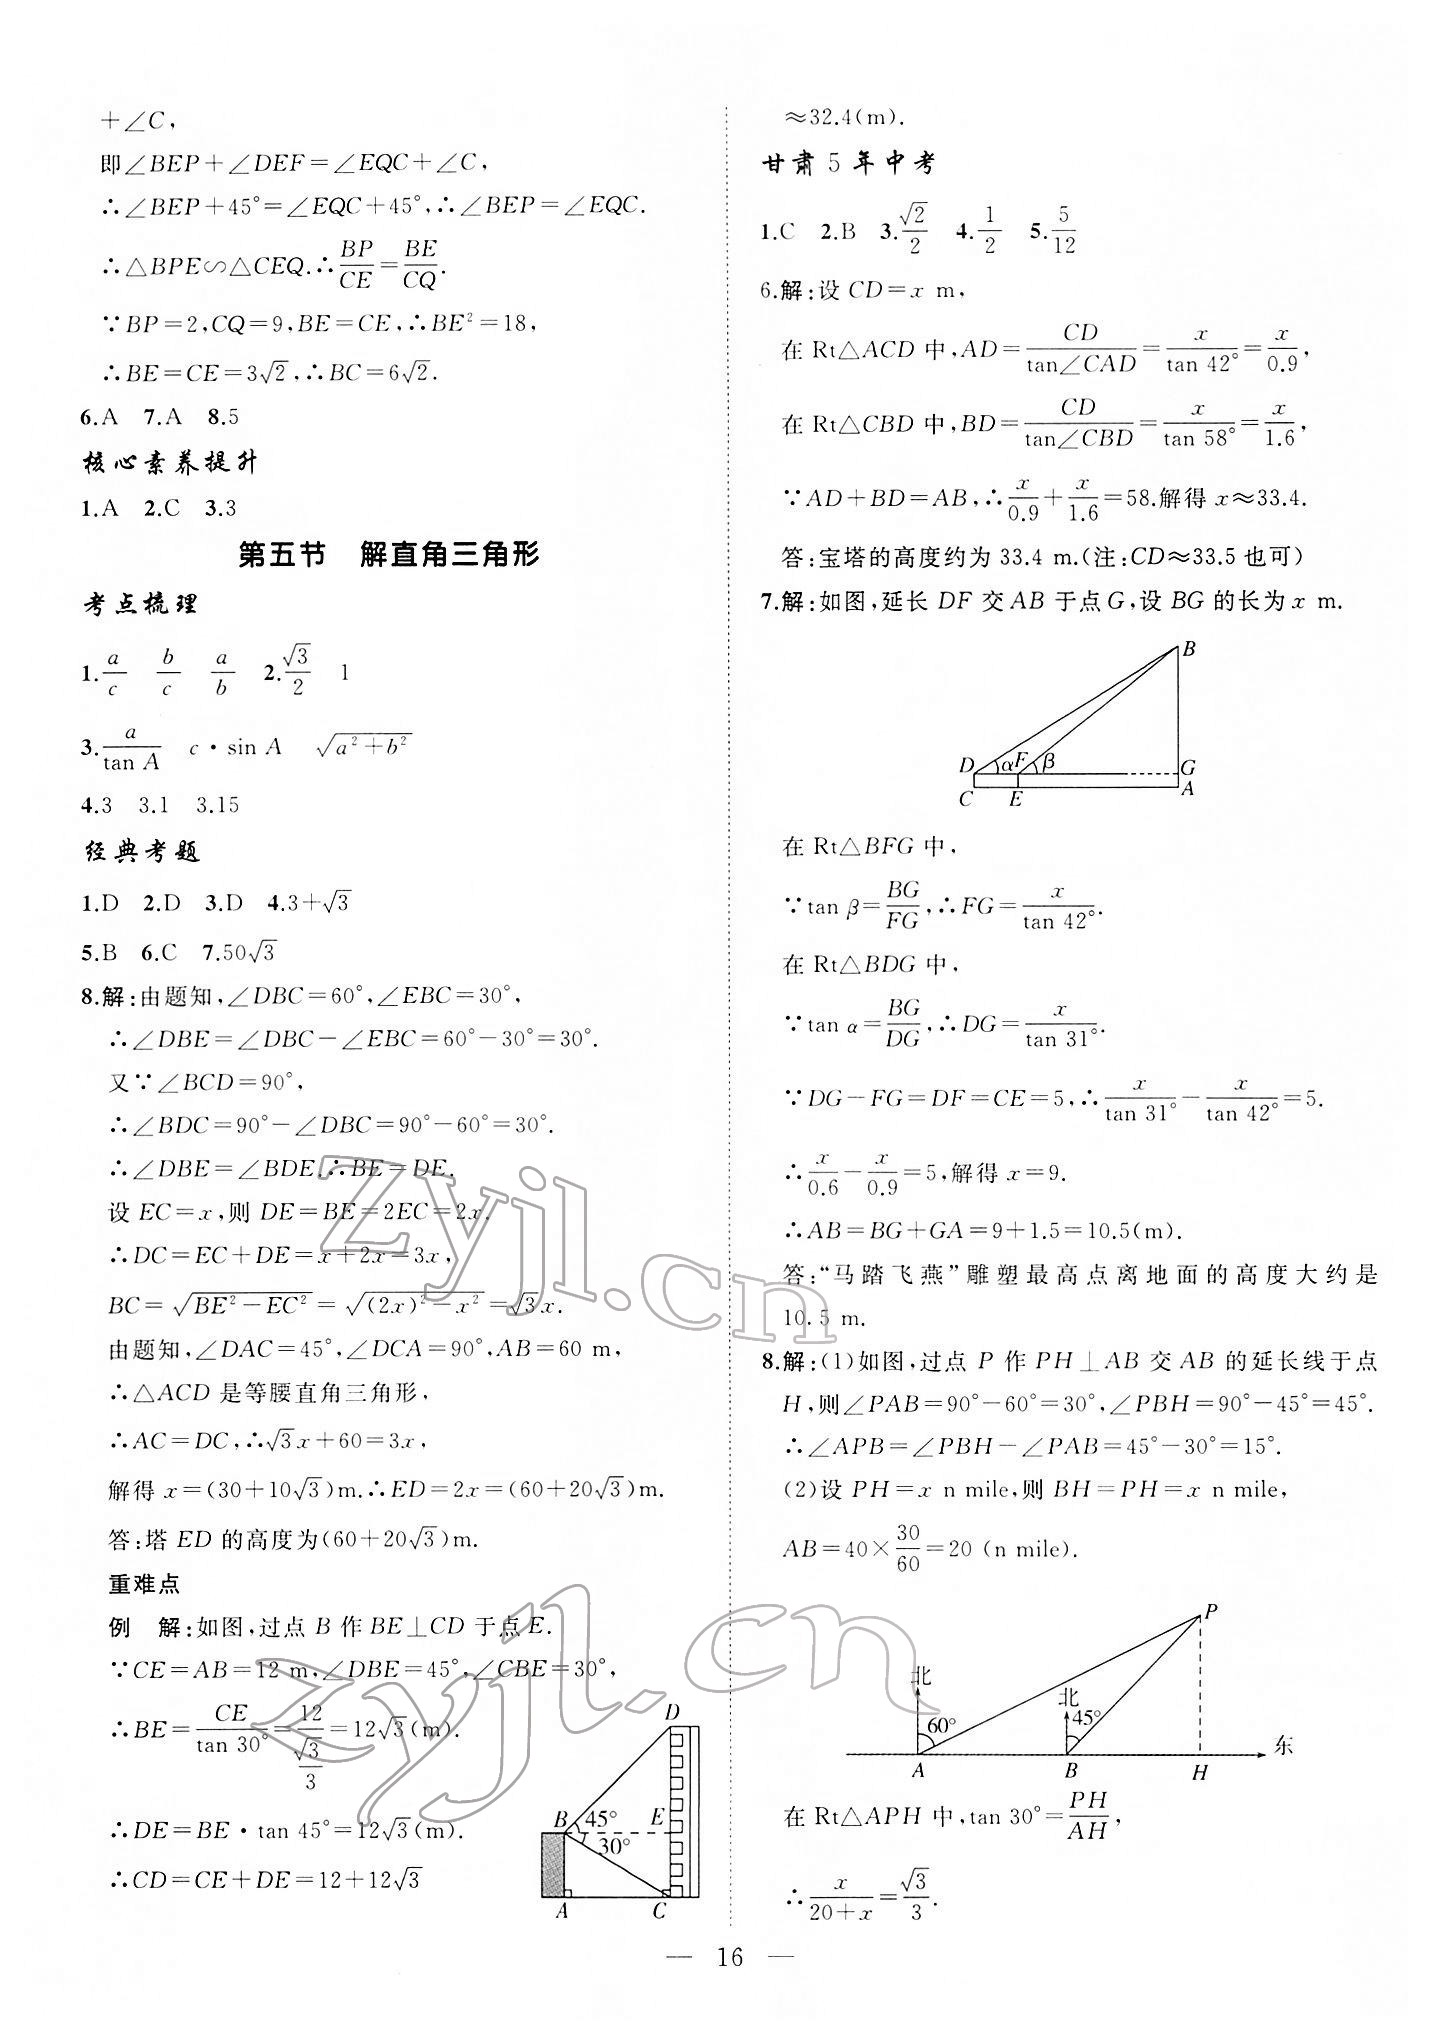 +∠C,
即∠BEP+∠DEF=∠EQC+∠C,
∴∠BEP+45°=∠EQC+45°,∴∠BEP=∠EQC.
∴△BPE∽△CEQ.∴BP/CE=BE/CQ.
∵BP=2,CQ=9,BE=CE,∴BE²=18,
∴BE=CE=3√2,∴BC=6√2.
6.A 7.A 8.5
核心素养提升
1.A 2.C 3.3
第五节 解直角三角形
考点梳理
1.a/c b/c a/b 2.√3/2 1
3.a/tan A c·sin A √(a²+b²)
4.3 3.1 3.15
经典考题
1.D 2.D 3.D 4.3+√3
5.B 6.C 7.50√3
8.解:由题知,∠DBC=60°,∠EBC=30°,
∴∠DBE=∠DBC-∠EBC=60°-30°=30°.
又∵∠BCD=90°,
∴∠BDC=90°-∠DBC=90°-60°=30°.
∴∠DBE=∠BDE.∴BE=DE.
设EC=x,则DE=BE=2EC=2x.
∴DC=EC+DE=x+2x=3x,
BC=√(BE²-EC²)=√((2x)²-x²)=√3x.
由题知,∠DAC=45°,∠DCA=90°,AB=60 m,
∴△ACD是等腰直角三角形,
∴AC=DC,∴√3x+60=3x,
解得x=(30+10√3)m.∴ED=2x=(60+20√3)m.
答:塔ED的高度为(60+20√3)m.
重难点
例 解:如图,过点B作BE⊥CD于点E.
∵CE=AB=12 m,∠DBE=45°,∠CBE=30°,
∴BE=CE/tan 30°=12/(√3/3)=12√3(m).
∴DE=BE·tan 45°=12√3(m).
∴CD=CE+DE=12+12√3
D
B 45° E
30°
A C
≈32.4(m).
甘肃5年中考
1.C 2.B 3.√2/2 4.1/2 5.5/12
6.解:设CD=x m,
在Rt△ACD中,AD=CD/tan∠CAD=x/tan 42°=x/0.9,
在Rt△CBD中,BD=CD/tan∠CBD=x/tan 58°=x/1.6,
∵AD+BD=AB,∴x/0.9+x/1.6=58.解得x≈33.4.
答:宝塔的高度约为33.4 m.(注:CD≈33.5也可)
7.解:如图,延长DF交AB于点G,设BG的长为x m.
B
D α F β G
C E A
在Rt△BFG中,
∵tan β=BG/FG,∴FG=x/tan 42°.
在Rt△BDG中,
∵tan α=BG/DG,∴DG=x/tan 31°.
∵DG-FG=DF=CE=5,∴x/tan 31°-x/tan 42°=5.
∴x/0.6-x/0.9=5,解得x=9.
∴AB=BG+GA=9+1.5=10.5(m).
答:“马踏飞燕”雕塑最高点离地面的高度大约是
10.5 m.
8.解:(1)如图,过点P作PH⊥AB交AB的延长线于点
H,则∠PAB=90°-60°=30°,∠PBH=90°-45°=45°.
∴∠APB=∠PBH-∠PAB=45°-30°=15°.
(2)设PH=x n mile,则BH=PH=x n mile,
AB=40×30/60=20 (n mile).
P
北 北
60° 45° 东
A B H
在Rt△APH中,tan 30°=PH/AH,
∴x/(20+x)=√3/3.
— 16 —
zyjl.cn
zyjl.cn